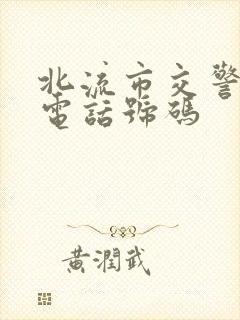 北流市交警
電話號碼
黃潤武